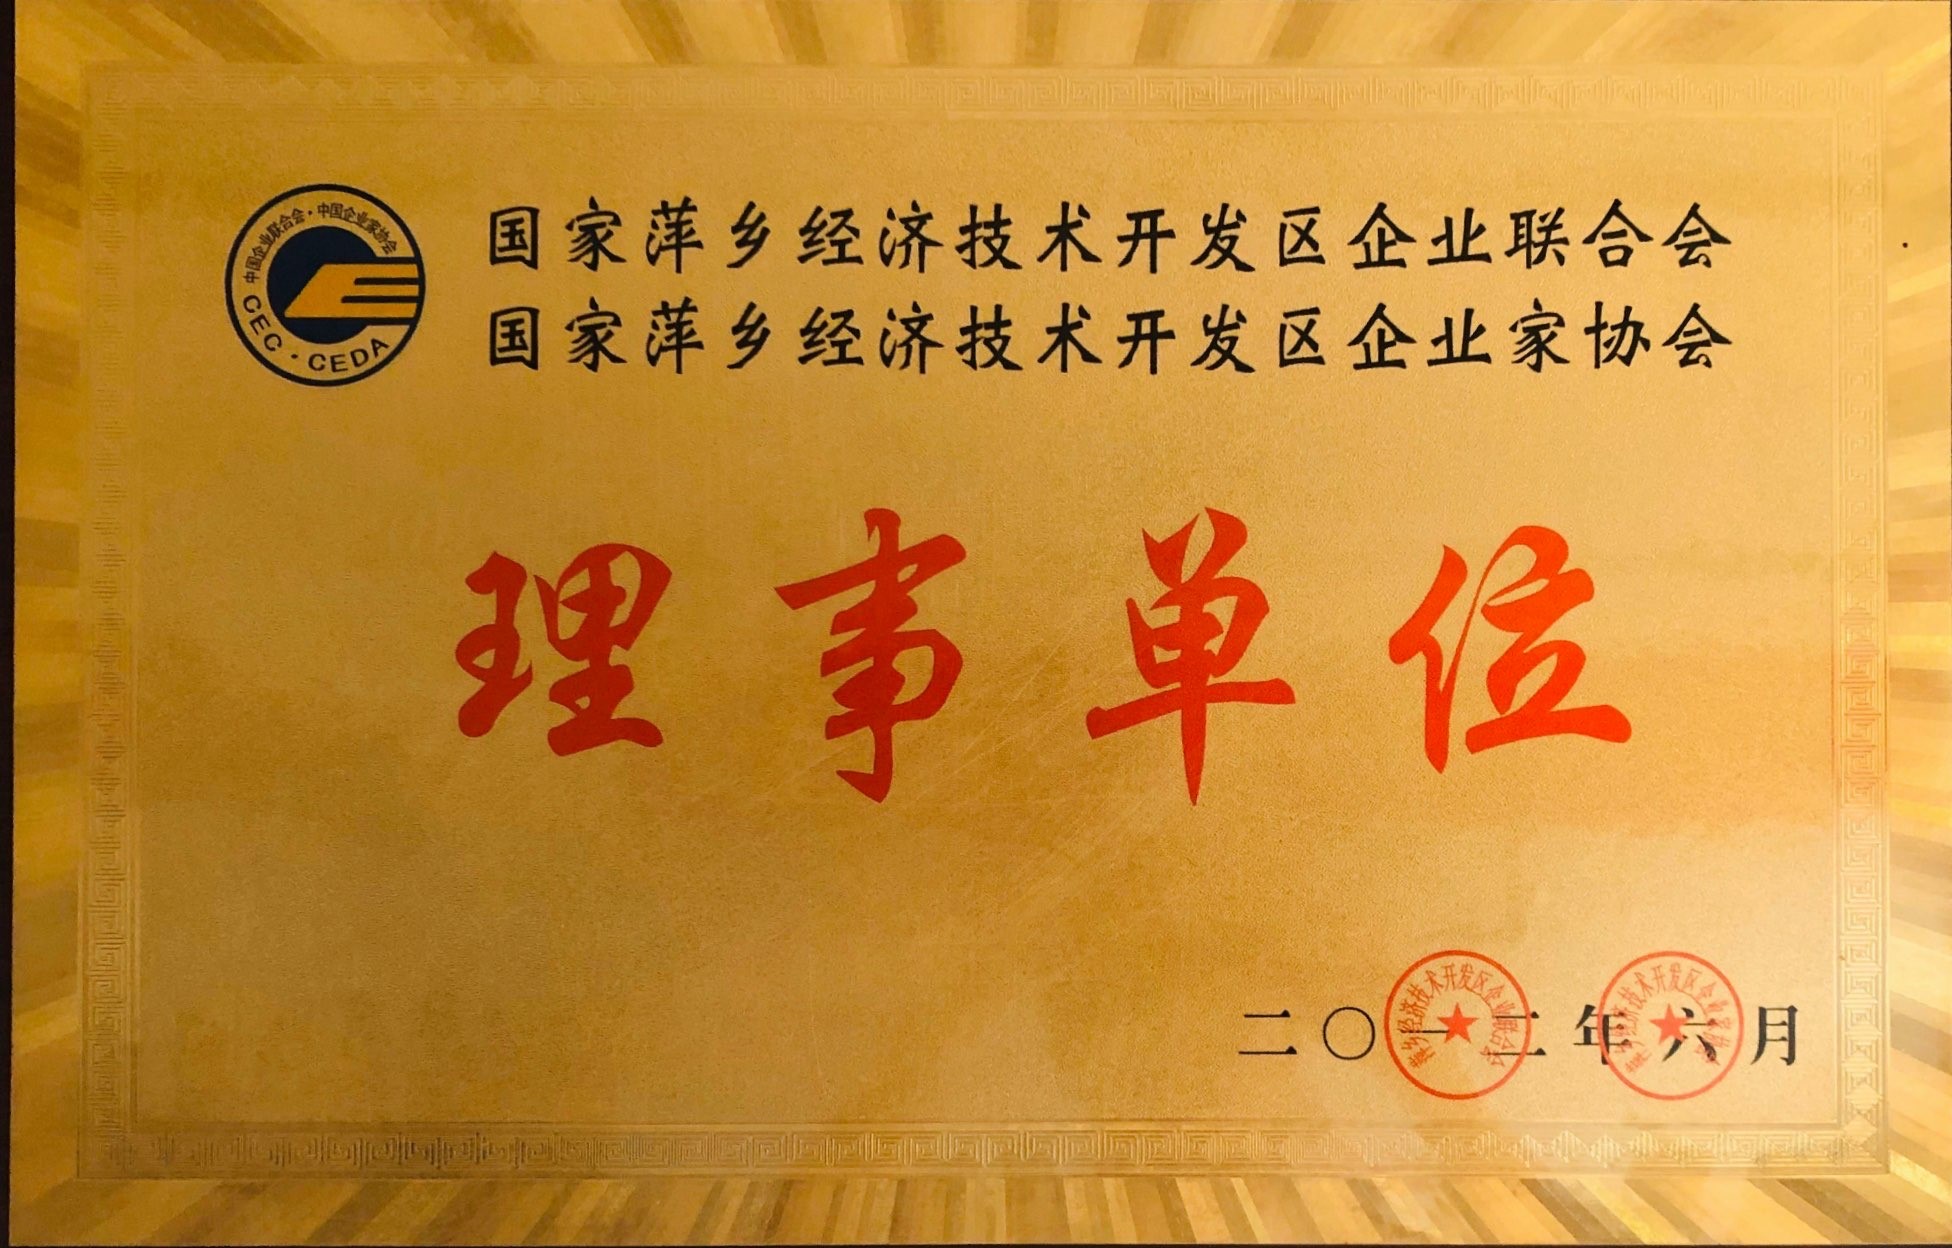 中国企业联合会·中国企业家协会
CEC·CEDA
国家萍乡经济技术开发区企业联合会
国家萍乡经济技术开发区企业家协会
理事单位
二〇一二年六月
萍乡经济技术开发区企业联合会
萍乡经济技术开发区企业家协会